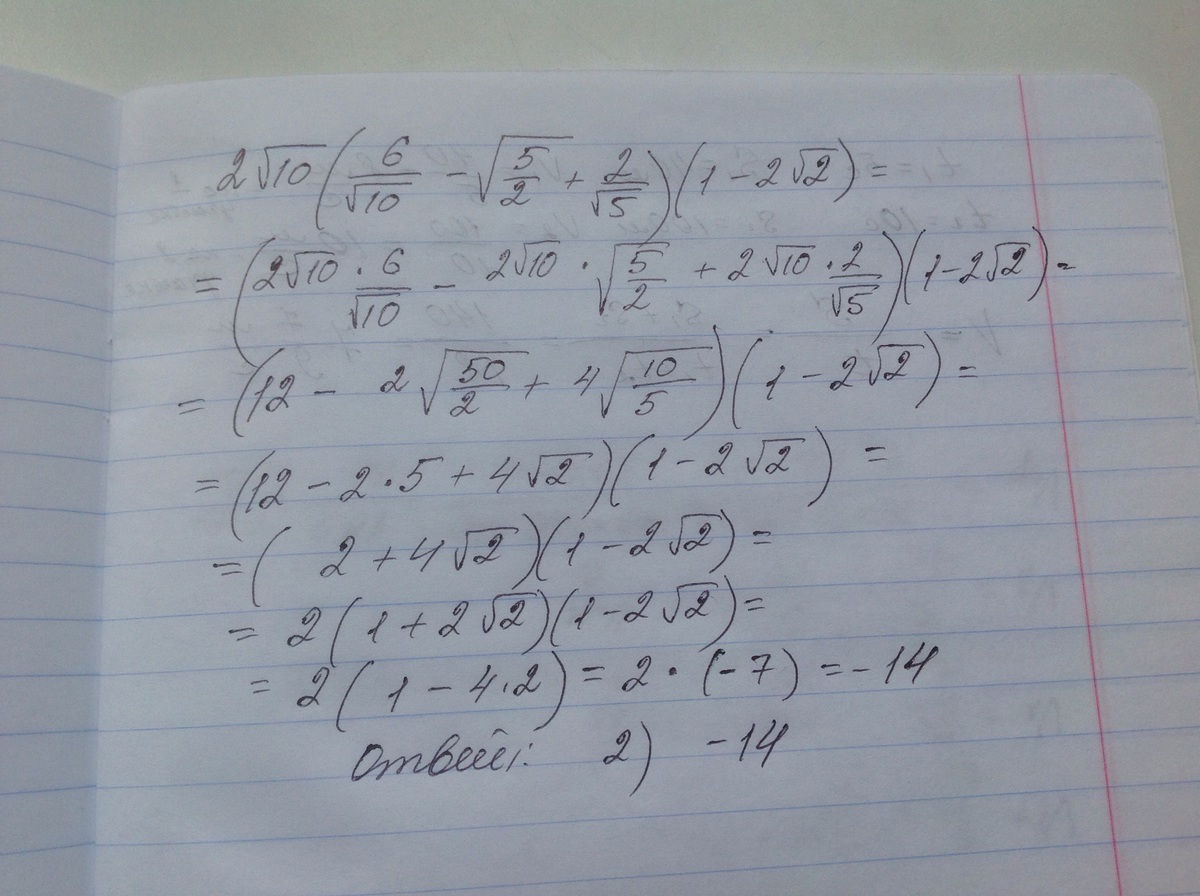 2√10(6/√10 - √(5/2) + 2/√5)(1 - 2√2) =
= (2√10 · 6/√10 - 2√10 · √(5/2) + 2√10 · 2/√5)(1 - 2√2) =
= (12 - 2√(50/2) + 4√(10/5))(1 - 2√2) =
= (12 - 2·5 + 4√2)(1 - 2√2) =
= (2 + 4√2)(1 - 2√2) =
= 2(1 + 2√2)(1 - 2√2) =
= 2(1 - 4·2) = 2·(-7) = -14
Ответ: 2) -14